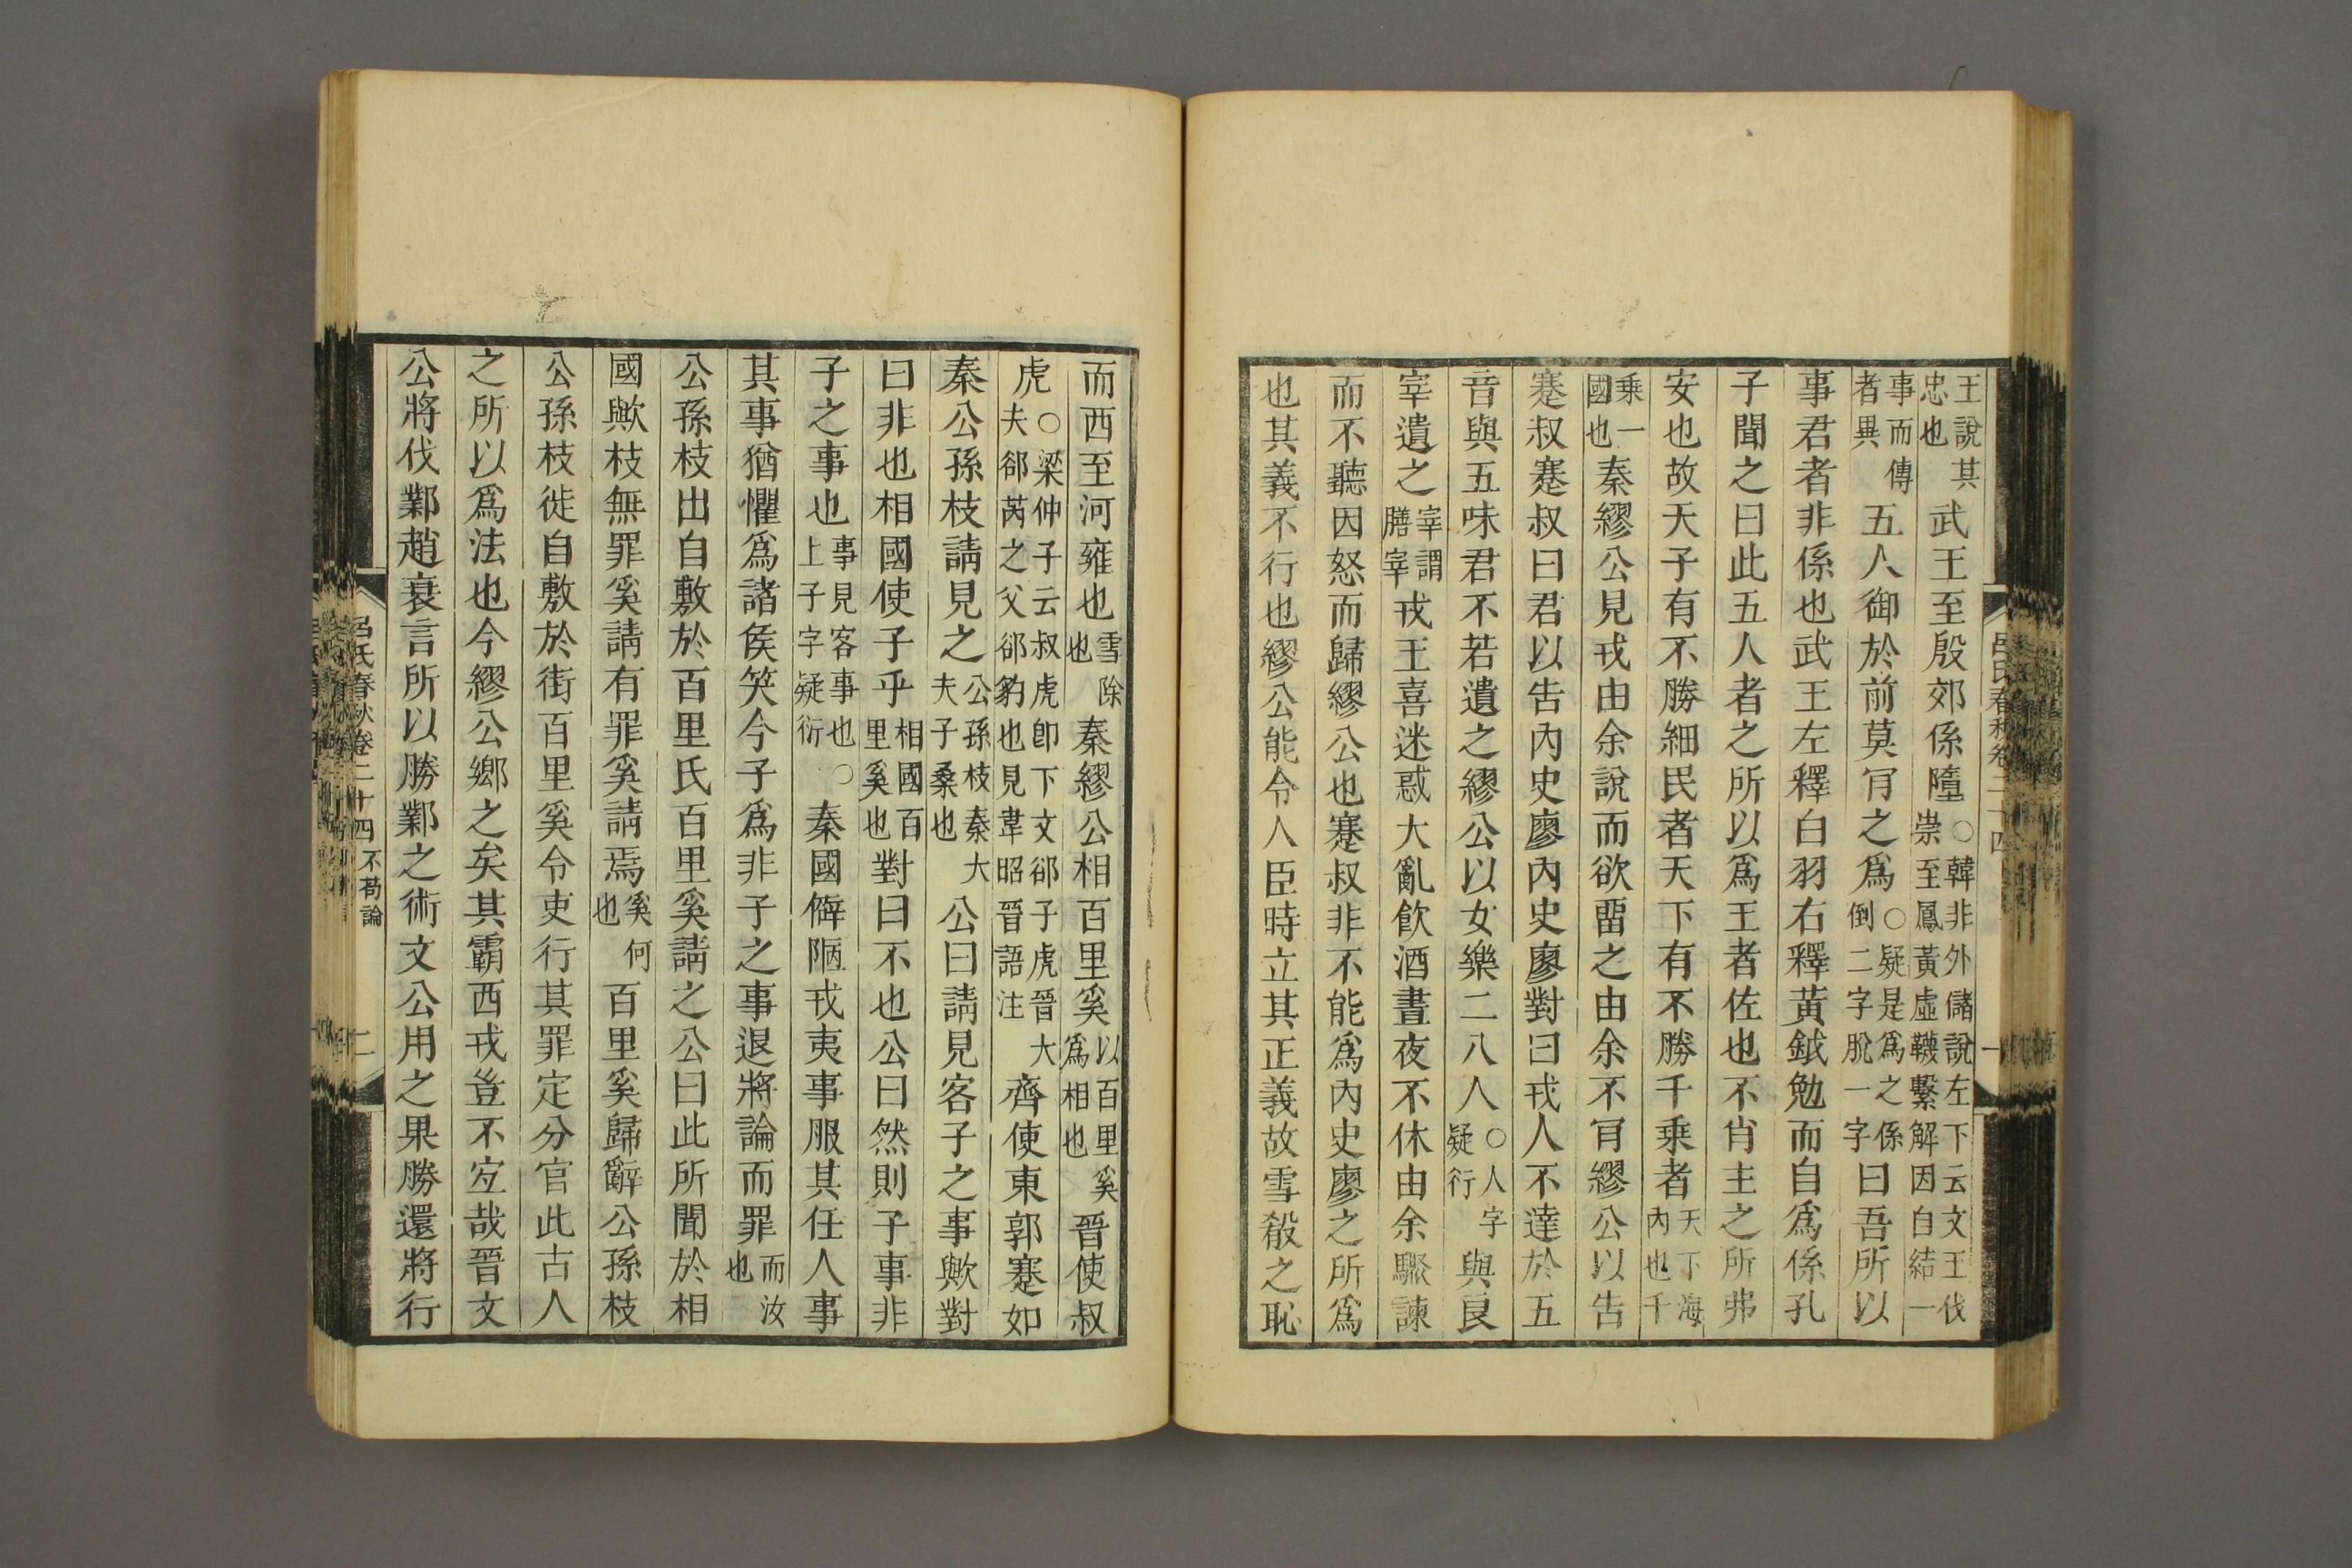 王說其忠也武王至殷郊係墮○韓非外儲說左下云文王伐崇至鳳黃虛韈繫解因自結一
事而傳者異五人御於前莫肎之爲○疑是爲之係倒二字脫一字曰吾所以
事君者非係也武王左釋白羽右釋黃鉞勉而自爲係孔
子聞之曰此五人者之所以爲王者佐也不肖主之所弗
安也故天子有不勝細民者天下有不勝千乘者天下海內也千
乘一國也秦繆公見戎由余說而欲畱之由余不肎繆公以告
蹇叔蹇叔曰君以告內史廖內史廖對曰戎人不達於五
音與五味君不若遺之繆公以女樂二八人○人字疑衍與良
宰遺之宰謂膳宰戎王喜迷惑大亂飮酒晝夜不休由余驟諫
而不聽因怒而歸繆公也蹇叔非不能爲內史廖之所爲
也其義不行也繆公能令人臣時立其正義故雪殽之恥
呂氏春秋卷二十四 一
而西至河雍也雪除也秦繆公相百里奚以百里奚爲相也晉使叔
虎○梁仲子云叔虎卽下文郤子虎晉大夫郤芮之父郤豹也見韋昭晉語注齊使東郭蹇如
秦公孫枝請見之公孫枝秦大夫子桑也公曰請見客子之事歟對
曰非也相國使子乎相國百里奚也對曰不也公曰然則子事非
子之事也事見客事也○上子字疑衍秦國僻陋戎夷事服其任人事
其事猶懼爲諸侯笑今子爲非子之事退將論而罪而汝也
公孫枝出自敷於百里氏百里奚請之公曰此所聞於相
國歟枝無罪奚請有罪奚請焉奚何也百里奚歸辭公孫枝
公孫枝徙自敷於街百里奚令吏行其罪定分官此古人
之所以爲法也今繆公鄉之矣其霸西戎豈不宐哉晉文
公將伐鄴趙衰言所以勝鄴之術文公用之果勝還將行
呂氏春秋卷二十四 不苟論 二